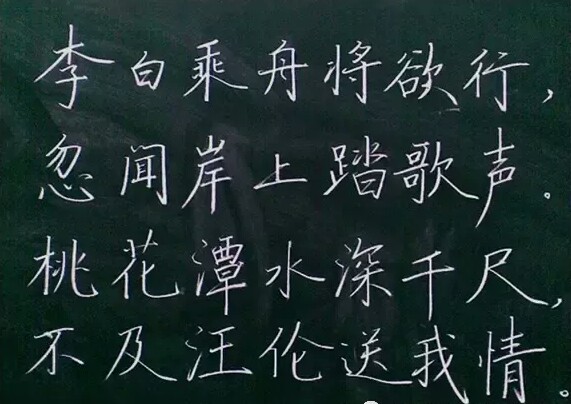 李白乘舟将欲行,
忽闻岸上踏歌声.
桃花潭水深千尺,
不及汪伦送我情。